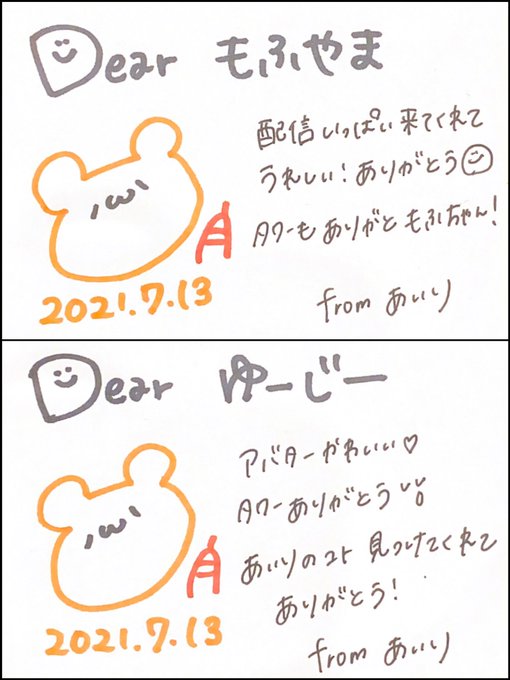 Dear もふやま
配信いっぱい来てくれて
うれしい!ありがとう
タワーもありがと もふちゃん!
2021.7.13
from あいり
Dear ゆーじー
アバターかわいい♡
タワーありがとう
あいりのコト 見つけてくれて
ありがとう!
2021.7.13
from あいり